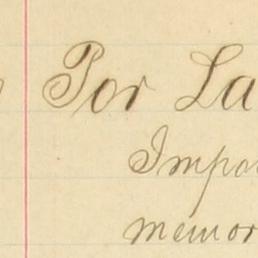 Por La
Impor
memor